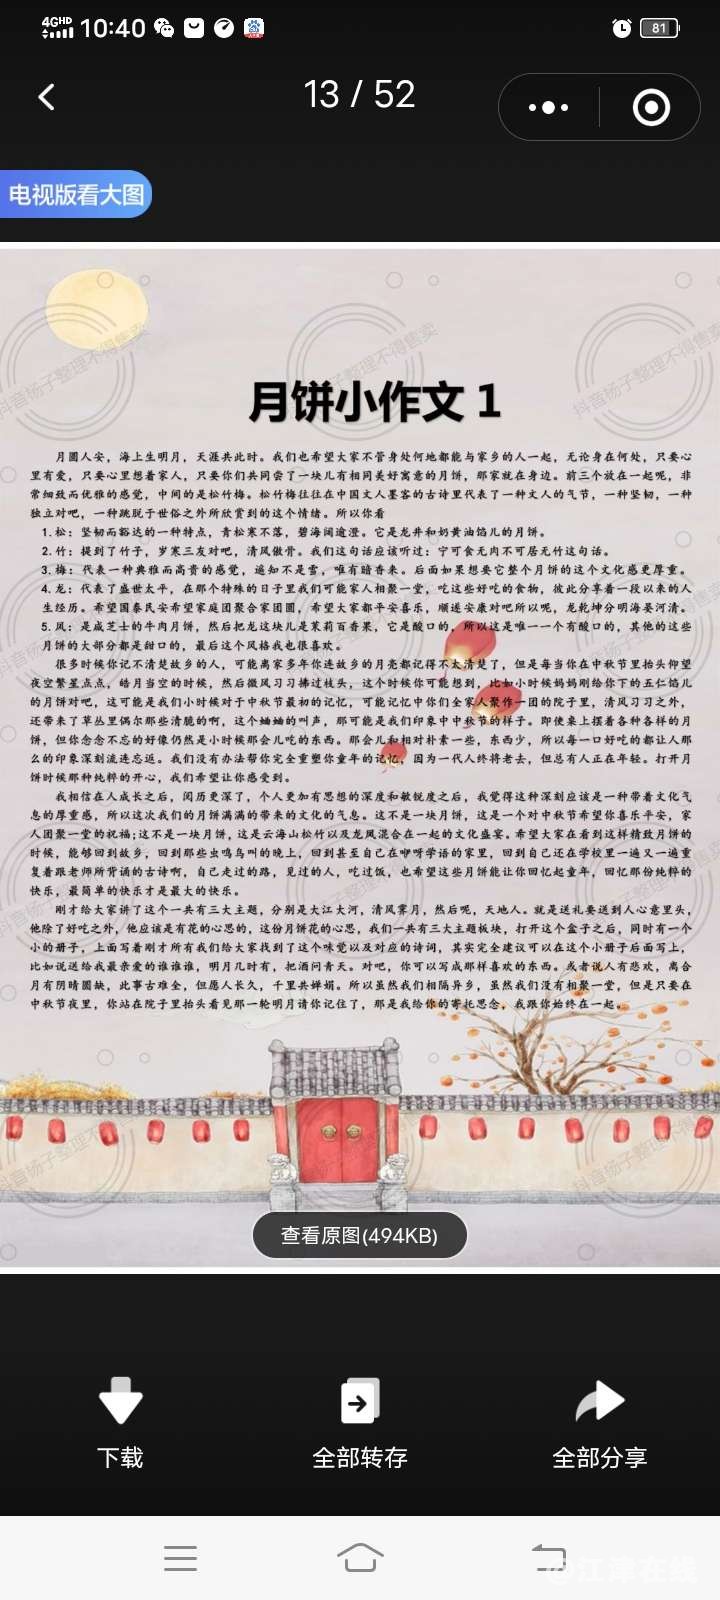 4GHD 10:40 81
13 / 52
电视版看大图
月饼小作文 1
月圆人安，海上生明月，天涯共此时。我们也希望大家不管身处何地都能与家乡的人一起，无论身在何处，只要心
里有爱，只要心里想着家人，只要你们共同尝了一块儿有相同美好寓意的月饼，那家就在身边。前三个放在一起呢，非
常细致而优雅的感觉，中间的是松竹梅。松竹梅往往在中国文人墨客的古诗里代表了一种文人的气节，一种坚韧，一种
独立对吧，一种跳脱于世俗之外所欣赏到的这个情绪。所以你看
1.松：坚韧而豁达的一种特点，青松寒不落，碧海阔逾澄。它是龙井和奶黄油馅儿的月饼。
2.竹：提到了竹子，岁寒三友对吧，清风傲骨。我们这句话应该听过：宁可食无肉不可居无竹这句话。
3.梅：代表一种典雅而高贵的感觉，遥知不是雪，唯有暗香来。后面如果想要它整个月饼的这个文化感更厚重。
4.龙：代表了盛世太平，在那个特殊的日子里我们可能家人相聚一堂，吃这些好吃的食物，彼此分享着一段以来的人
生经历。希望国泰民安希望家庭团聚合家团圆，希望大家都平安喜乐，顺遂安康对吧所以呢，龙乾坤分明海晏河清。
5.凤：是咸芝士的牛肉月饼，然后把龙这块儿是茉莉百香果，它是酸口的，所以这是唯一一个有酸口的，其他的这些
月饼的大部分都是甜口的，最后这个风格我也很喜欢。
很多时候你记不清楚故乡的人，可能离家多年你连故乡的月亮都记得不太清楚了，但是每当你在中秋节里抬头仰望
夜空繁星点点，皓月当空的时候，然后微风习习拂过枝头，这个时候你可能想到，比如小时候妈妈刚给你下的五仁馅儿
的月饼对吧，这可能是我们小时候对于中秋节最初的记忆，可能记忆中你们全家人聚作一团的院子里，清风习习之外，
还带来了草丛里偶尔那些清脆的啊，这个蛐蛐的叫声，那可能是我们印象中中秋节的样子。即使桌上摆着各种各样的月
饼，但你念念不忘的好像仍然是小时候那会儿吃的东西。那会儿和相对朴素一些，东西少，所以每一口好吃的都让人那
么的印象深刻流连忘返。我们没有办法帮你完全重塑你童年的记忆，因为一代人终将老去，但总有人正在年轻。打开月
饼时候那种纯粹的开心，我们希望让你感受到。
我相信在人成长之后，阅历更深了，个人更加有思想的深度和敏锐度之后，我觉得这种深刻应该是一种带着文化气
息的厚重感，所以这次我们的月饼满满的带来的文化的气息。这不是一块月饼，这是一个对中秋节希望你喜乐平安，家
人团聚一堂的祝福;这不是一块月饼，这是云海山松竹以及龙凤混合在一起的文化盛宴。希望大家在看到这样精致月饼的
时候，能够回到故乡，回到那些虫鸣鸟叫的晚上，回到甚至自己在咿呀学语的家里，回到自己还在学校里一遍又一遍重
复着跟老师所背诵的古诗啊，自己走过的路，见过的人，吃过饭，也希望这些月饼能让你回忆起童年，回忆那份纯粹的
快乐，最简单的快乐才是最大的快乐。
刚才给大家讲了这个一共有三大主题，分别是大江大河，清风霁月，然后呢，天地人。就是送礼要送到人心意里头，
他除了好吃之外，他应该是有花的心思的，这份月饼花的心思，我们一共有三大主题板块，打开这个盒子之后，同时有一个
小的册子，上面写着刚才所有我们给大家找到了这个味觉以及对应的诗词，其实完全建议可以在这个小册子后面写上，
比如说送给我最亲爱的谁谁谁，明月几时有，把酒问青天。对吧，你可以写成那样喜欢的东西。或者说人有悲欢，离合
月有阴晴圆缺，此事古难全，但愿人长久，千里共婵娟。所以虽然我们相隔异乡，虽然我们没有相聚一堂，但是只要在
中秋节夜里，你站在院子里抬头看见那一轮明月请你记住了，那是我给你的寄托思念，我跟你始终在一起。
抖音杨子整理不得售卖
查看原图(494KB)
下载 全部转存 全部分享
@江津在线